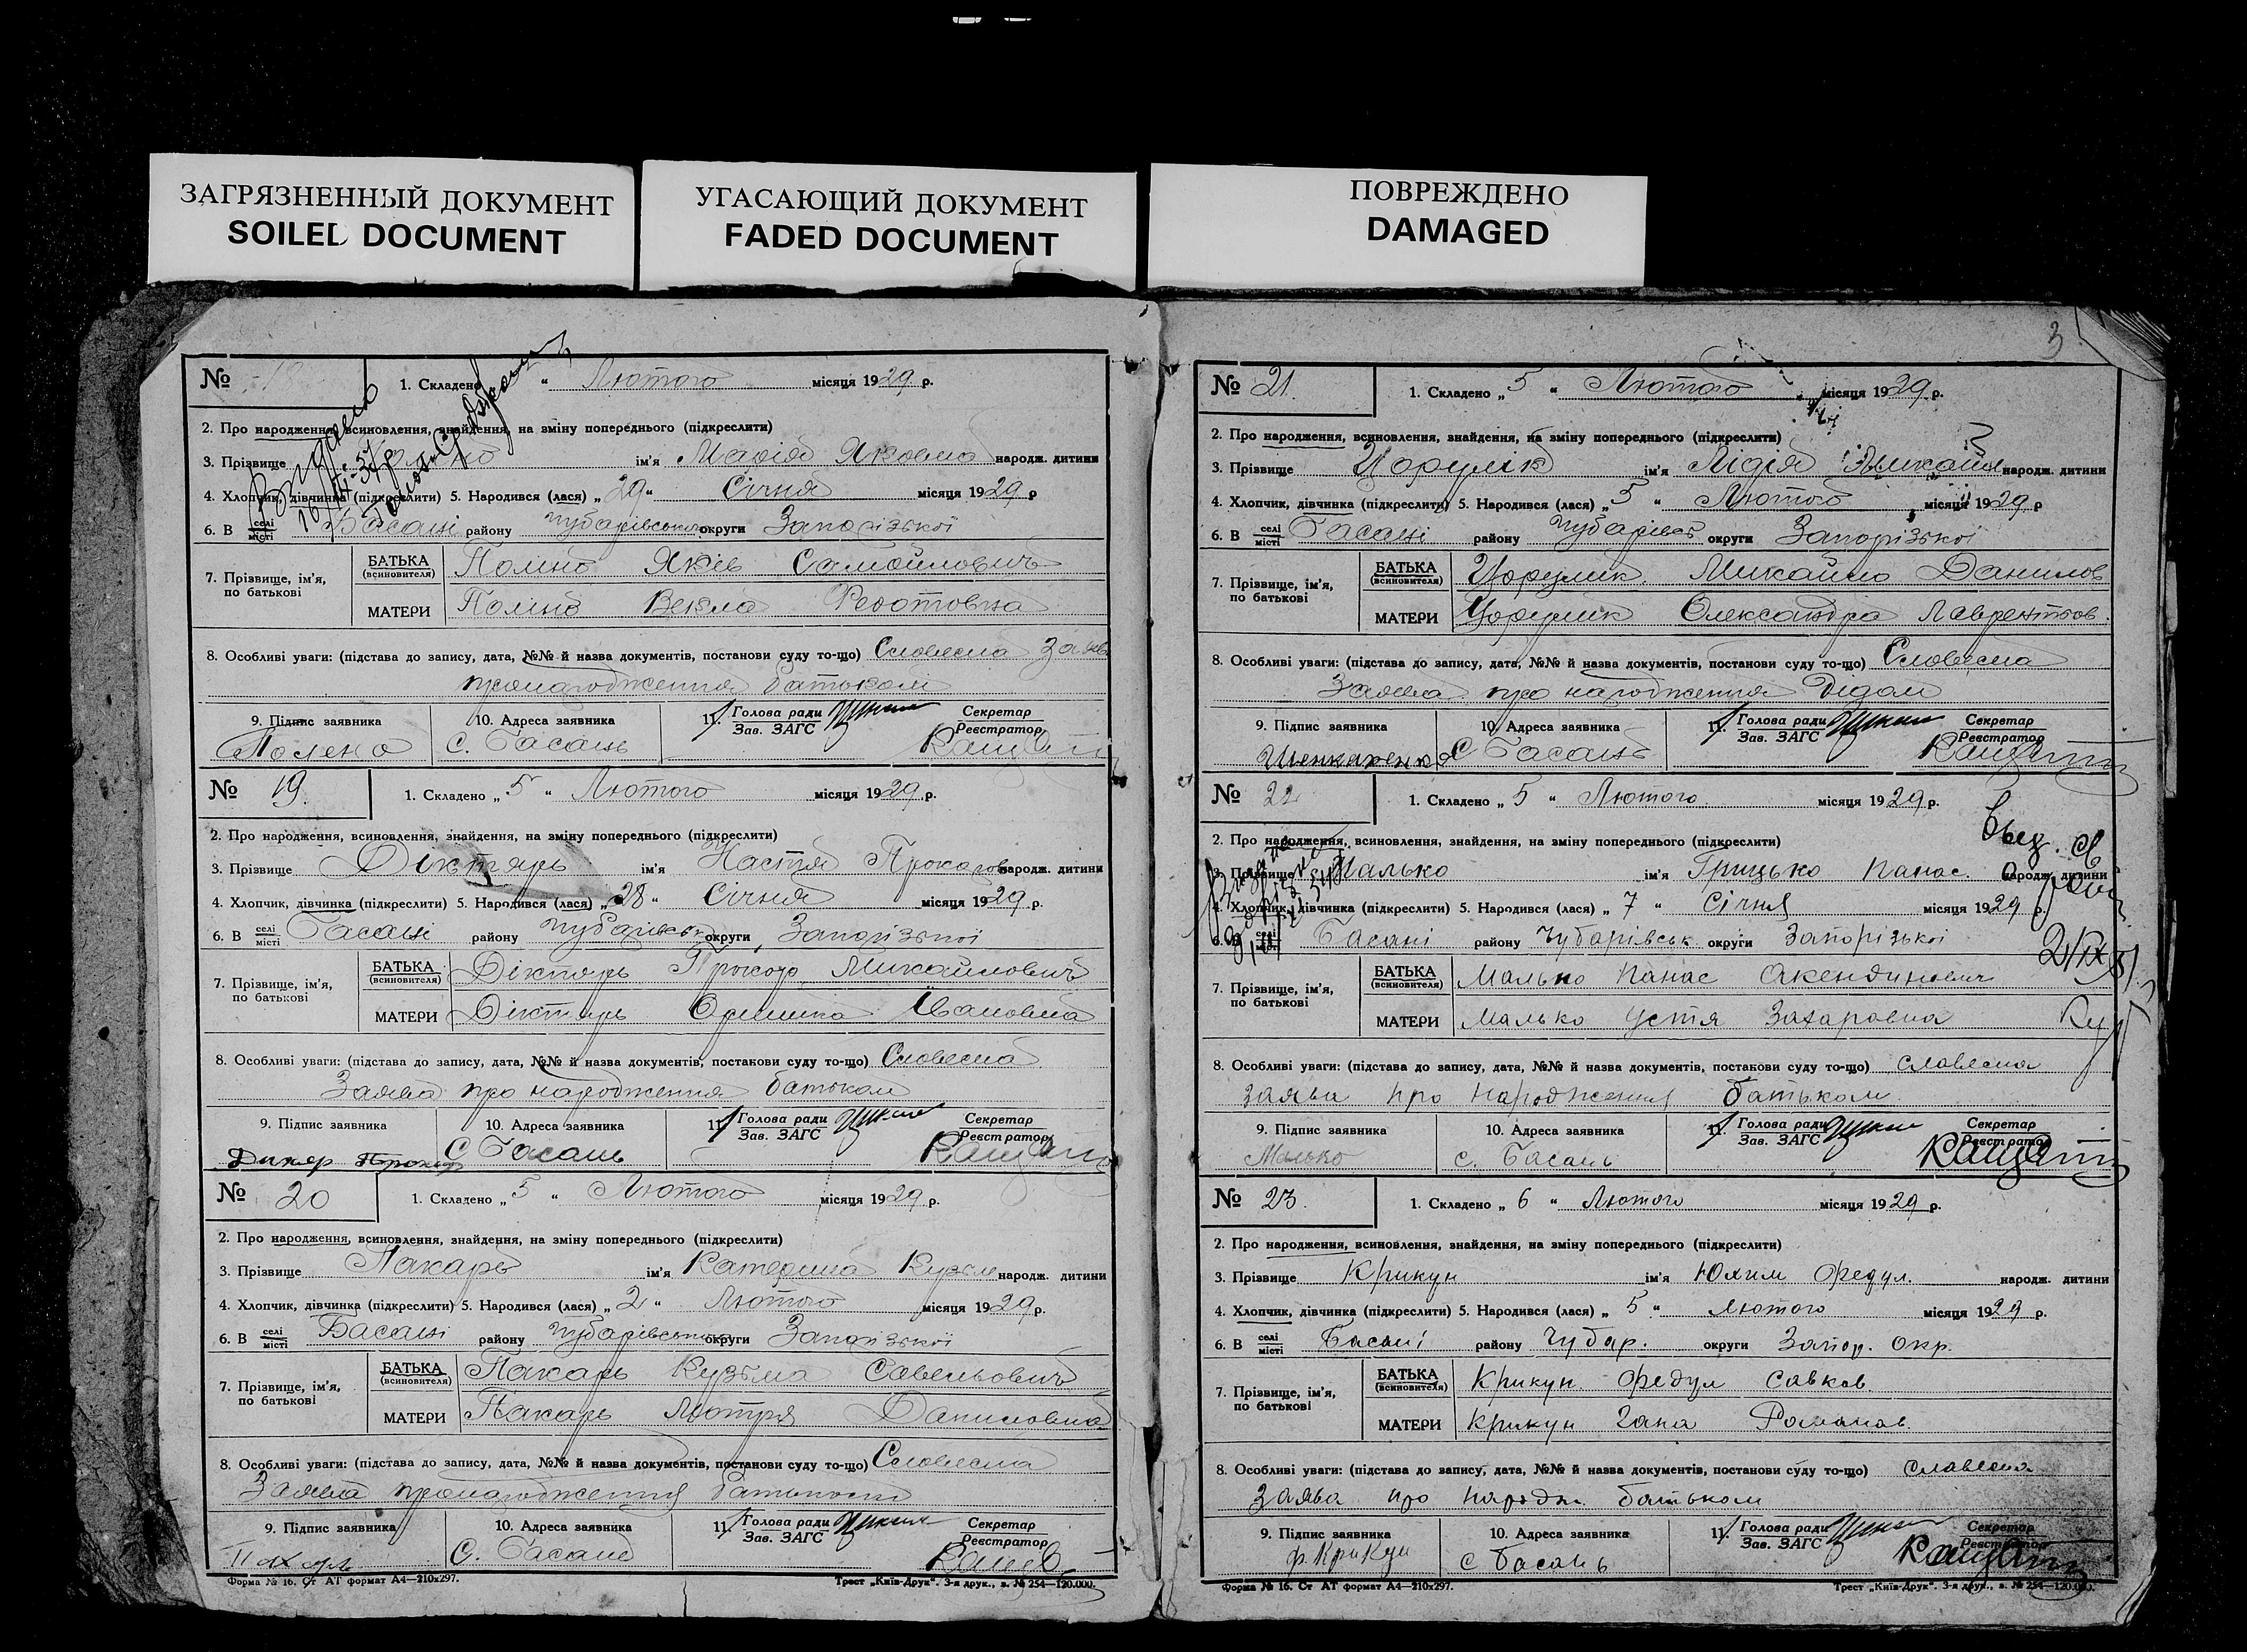 ЗАГРЯЗНЕННЫЙ ДОКУМЕНТ
SOILED DOCUMENT
УГАСАЮЩИЙ ДОКУМЕНТ
FADED DOCUMENT
ПОВРЕЖДЕНО
DAMAGED
№ 18
1. Складено " Лютого місяця 1929 р.
2. Про народження, всиновлення, знайдення, на зміну попереднього (підкреслити)
3. Прізвище ім'я Марія Яковна народж. дитини
4. Хлопчик, дівчинка (підкреслити) 5. Народився (лася) „ 29 " Січня місяця 1929 р
6. В селі місті Басані району Чубарівського округи Запорізької
7. Прізвище, ім'я, по батькові
БАТЬКА (всиновителя) Поліно Яків Самойлович
МАТЕРИ Поліно Векла Федотовна
8. Особливі уваги: (підстава до запису, дата, №№ й назва документів, постанови суду то-що) Словесна заява
про народження батьком
9. Підпис заявника 10. Адреса заявника 11. Голова ради Зав. ЗАГС Секретар Реєстратор
Полено с. Басань
№ 19.
1. Складено „ 5 " Лютого місяця 1929 р.
2. Про народження, всиновлення, знайдення, на зміну попереднього (підкреслити)
3. Прізвище Діктярь ім'я Настя Прокопов народж. дитини
4. Хлопчик, дівчинка (підкреслити) 5. Народився (лася) „ 28 " Січня місяця 1929 р.
6. В селі місті Басані району Чубарівськ округи Запорізької
7. Прізвище, ім'я, по батькові
БАТЬКА (всиновителя) Діктярь Прокоп Михайлович
МАТЕРИ Діктярь Оришка Івановна
8. Особливі уваги: (підстава до запису, дата, №№ й назва документів, постанови суду то-що) Словесна
Заява про народження батьком
9. Підпис заявника 10. Адреса заявника 11. Голова ради Зав. ЗАГС Секретар Реєстратор
С Басань
№ 20
1. Складено „ 5 " Лютого місяця 1929 р.
2. Про народження, всиновлення, знайдення, на зміну попереднього (підкреслити)
3. Прізвище Пахарь ім'я Катерина Кузьм народж. дитини
4. Хлопчик, дівчинка (підкреслити) 5. Народився (лася) „ 2 " Лютого місяця 1929 р.
6. В селі місті Басані району Чубарівськ округи Запорізької
7. Прізвище, ім'я, по батькові
БАТЬКА (всиновителя) Пахарь Кузьма Савельович
МАТЕРИ Пахарь Мотря Даниловна
8. Особливі уваги: (підстава до запису, дата, №№ й назва документів, постанови суду то-що) Словесна
Заява про народження батьком
9. Підпис заявника 10. Адреса заявника 11. Голова ради Зав. ЗАГС Секретар Реєстратор
Пахарь С. Басань
Форма № 16. Ст АТ формат А4—210x297. Трест „Київ-Друк". 3-я друк., з. № 254—120.000.
3
№ 21.
1. Складено „ 5 " Лютого місяця 1929 р.
2. Про народження, всиновлення, знайдення, на зміну попереднього (підкреслити)
3. Прізвище Цорулік ім'я Лідія Михайл народж. дитини
4. Хлопчик, дівчинка (підкреслити) 5. Народився (лася) „ 5 " Лютого місяця 1929 р
6. В селі місті Басані району Чубарівсь округи Запорізької
7. Прізвище, ім'я, по батькові
БАТЬКА (всиновителя) Цорулик Михайло Данилов
МАТЕРИ Цорулик Олександра Лаврентьов.
8. Особливі уваги: (підстава до запису, дата, №№ й назва документів, постанови суду то-що) Словесна
Заява про народження дідом
9. Підпис заявника 10. Адреса заявника 11. Голова ради Зав. ЗАГС Секретар Реєстратор
Шенкаренко С Басань
№ 22
1. Складено „ 5 " Лютого місяця 1929 р.
2. Про народження, всиновлення, знайдення, на зміну попереднього (підкреслити)
3. Прізвище Малько ім'я Грицько Панас. народж. дитини
4. Хлопчик, дівчинка (підкреслити) 5. Народився (лася) „ 7 " Січня місяця 1929 р.
6. В селі місті Басані району Чубарівськ округи Запорізької
7. Прізвище, ім'я, по батькові
БАТЬКА (всиновителя) Малько Панас Окендинович
МАТЕРИ Малько Устя Захаровна
8. Особливі уваги: (підстава до запису, дата, №№ й назва документів, постанови суду то-що) словесна
заява про народження батьком.
9. Підпис заявника 10. Адреса заявника 11. Голова ради Зав. ЗАГС Секретар Реєстратор
Малько с. Басань
№ 23.
1. Складено „ 6 " Лютого місяця 1929 р.
2. Про народження, всиновлення, знайдення, на зміну попереднього (підкреслити)
3. Прізвище Крикун ім'я Юхим Федул. народж. дитини
4. Хлопчик, дівчинка (підкреслити) 5. Народився (лася) „ 5 " Лютого місяця 1929 р.
6. В селі місті Басані району Чубар. округи Запор. окр.
7. Прізвище, ім'я, по батькові
БАТЬКА (всиновителя) Крикун Федул Савков.
МАТЕРИ Крикун Гана Романов.
8. Особливі уваги: (підстава до запису, дата, №№ й назва документів, постанови суду то-що) словесна
заява про народж. батьком
9. Підпис заявника 10. Адреса заявника 11. Голова ради Зав. ЗАГС Секретар Реєстратор
ф. Крикун с Басань
Форма № 16. Ст АТ формат А4—210x297. Трест „Київ-Друк". 3-я друк., з. № 254—120.000.